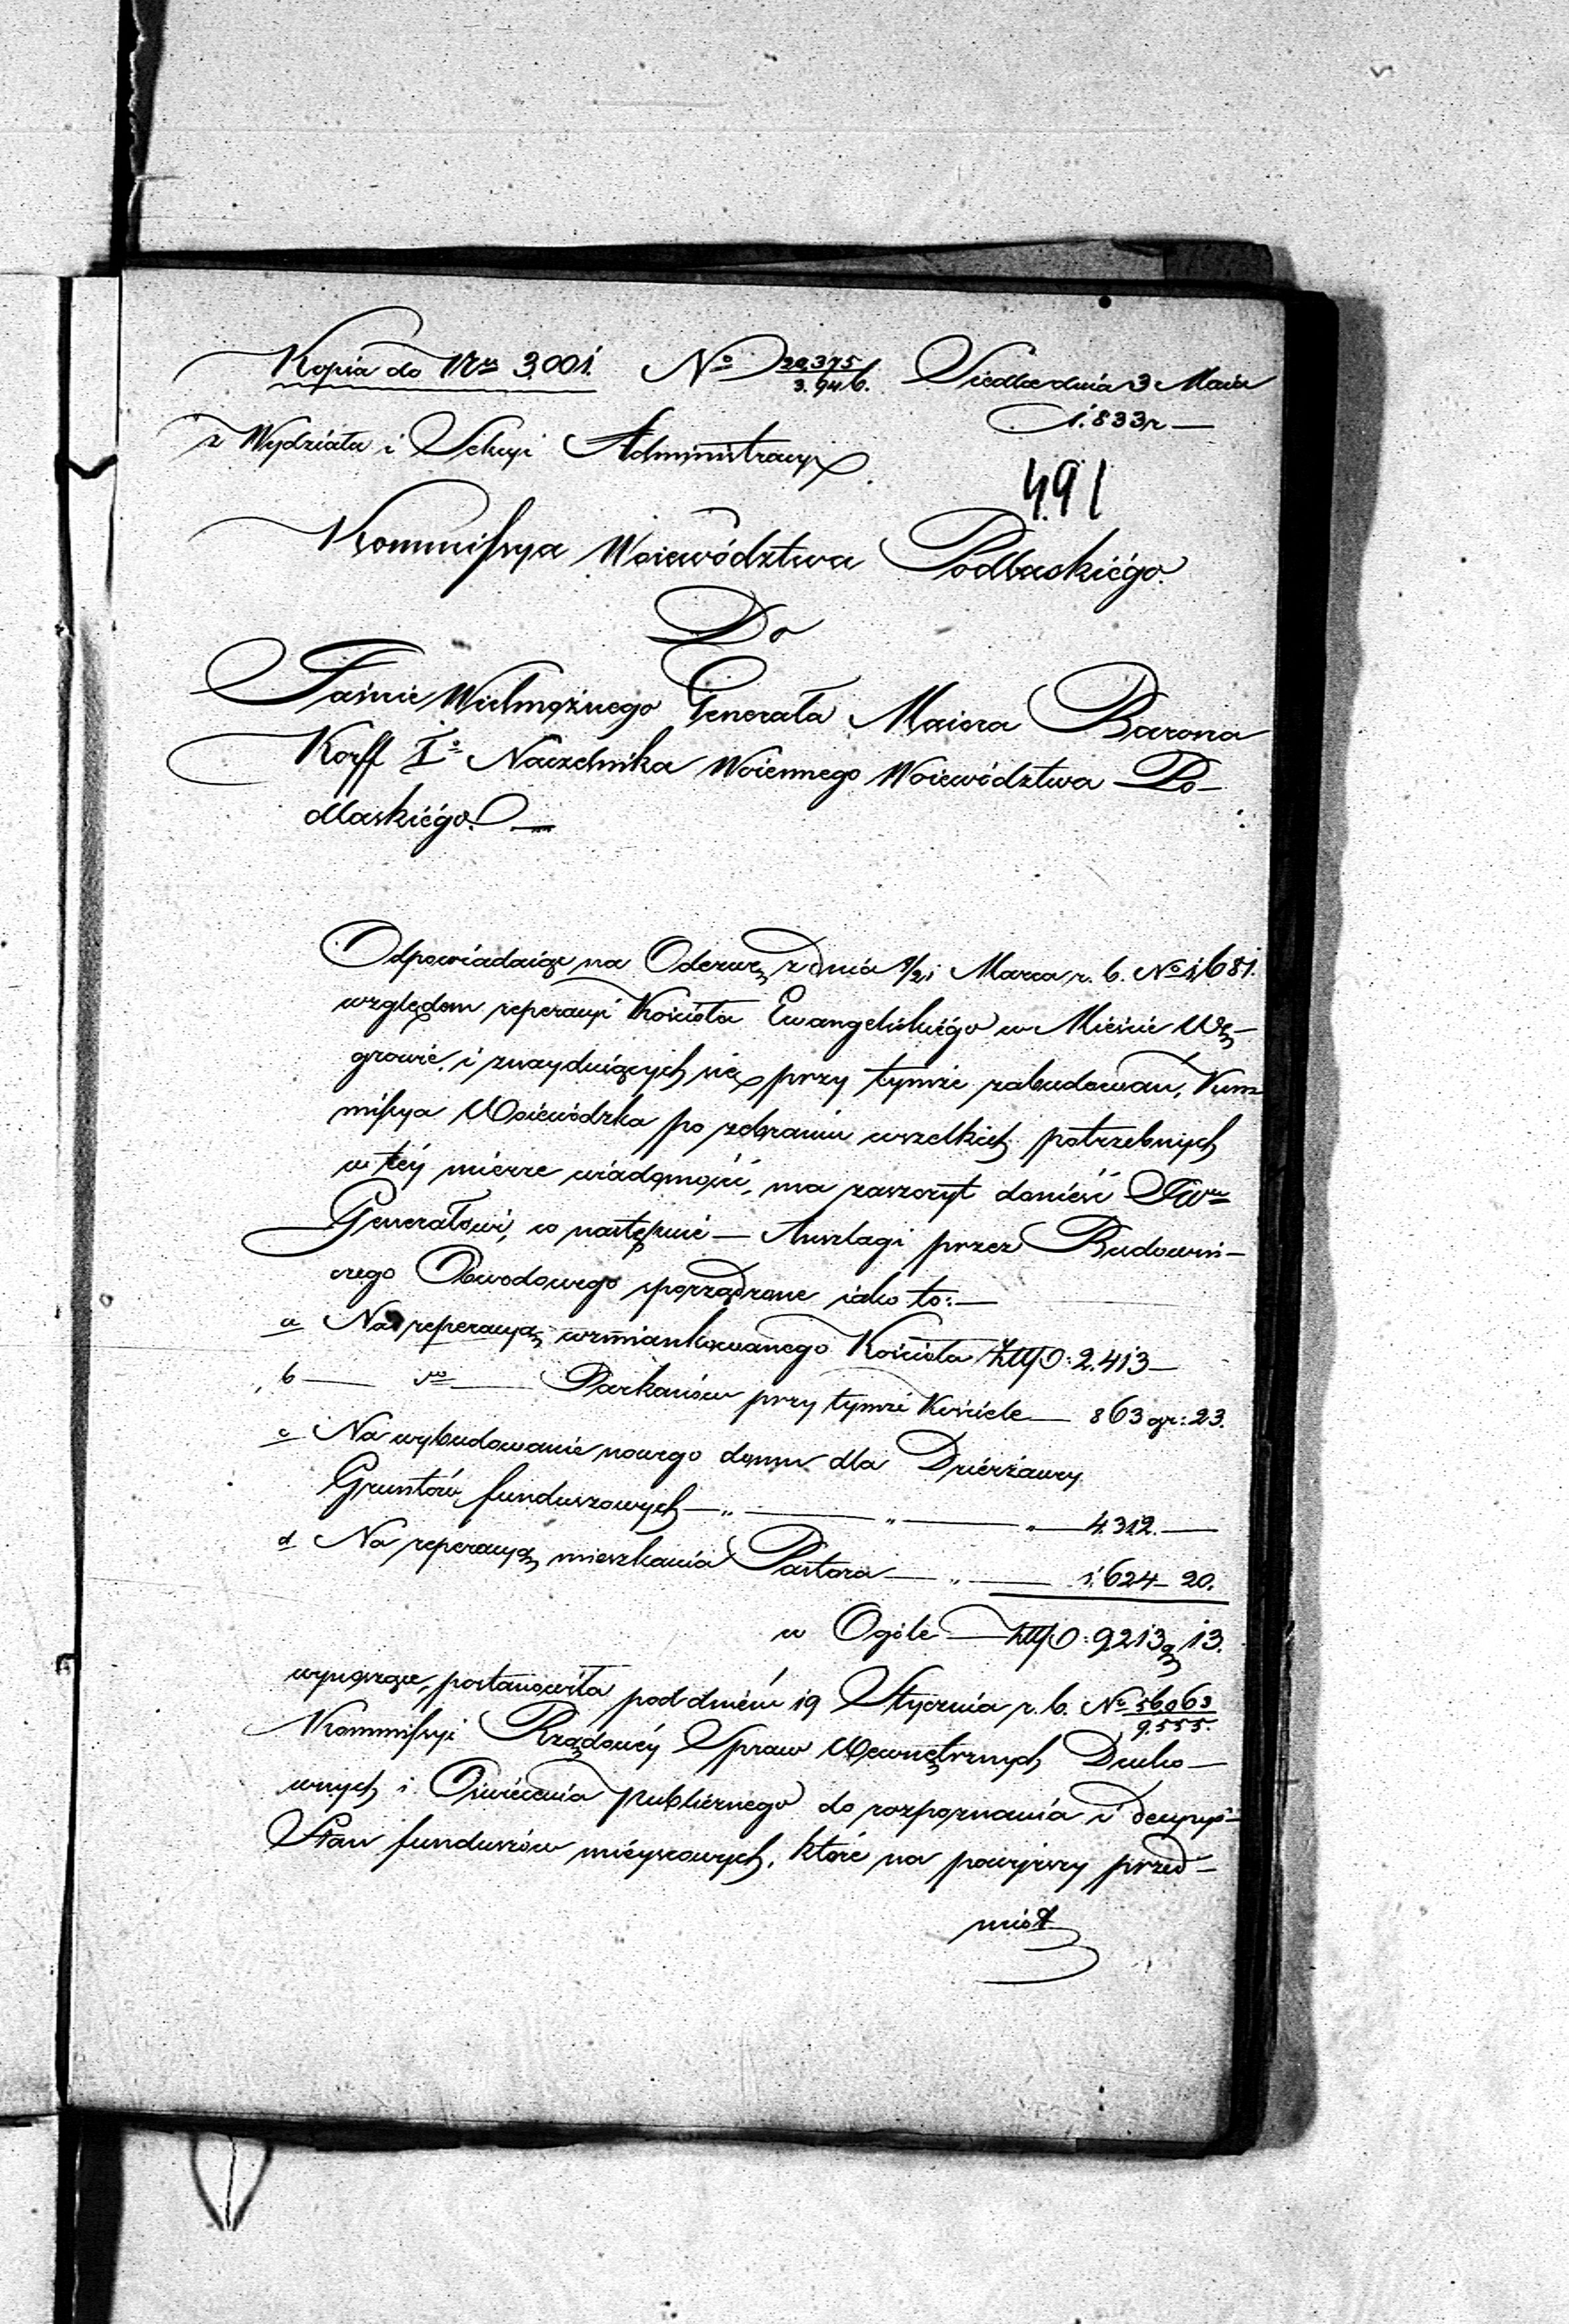 Kopia do Nru 3,001. No 20,375/3.946. Siedlce dnia 3 Maia
1.833 r —
z Wydziału i Sekcyi Administracyi
491
Kommissya Woiewództwa Podlaskiégo
Do
Jaśnie Wielmożnego Generała Maiora Barona
Korff Io Naczelnika Woiennego Woiewództwa Po-
dlaskiégo. —
Odpowiadaiąc na Odezwę z dnia 9/21 Marca r. b. No 1,681.
względem reperacyi Kościoła Ewangelickiégo w Mieście Wę-
growie, i znayduiących się przy tymże zabudowań, Kom-
missya Woiewódzka po zebraniu wszelkich potrzebnych
w téy mierze wiadomości, ma zaszczyt donieść JWu
Generałowi, co następuie — Anszlagi przez Budowni-
czego Obwodowego sporządzone iako to: —
a Na reperacyą wzmiankowanego Kościoła Złp: 2.413 —
b — — Parkanów przy tymże Kościele — 863 gr: 23.
c Na wybudowanie nowego domu dla Dzierżawcy
Gruntów funduszowych — „ — „ — „ — 4.312. —
d Na reperacyą mieszkania Pastora — „ — 1.624 — 20.
w Ogóle — Złp: 9213 g 13.
wynoszące, postanowiła pod dniem 19 Stycznia r. b. No 56063/9.555.
Kommissyi Rządowéy Spraw Wewnętrznych Ducho-
wnych i Oświecenia Publicznego do rozpoznania i decyzyi —
Stan funduszów mieyscowych, któré na powyższy przed-
miot